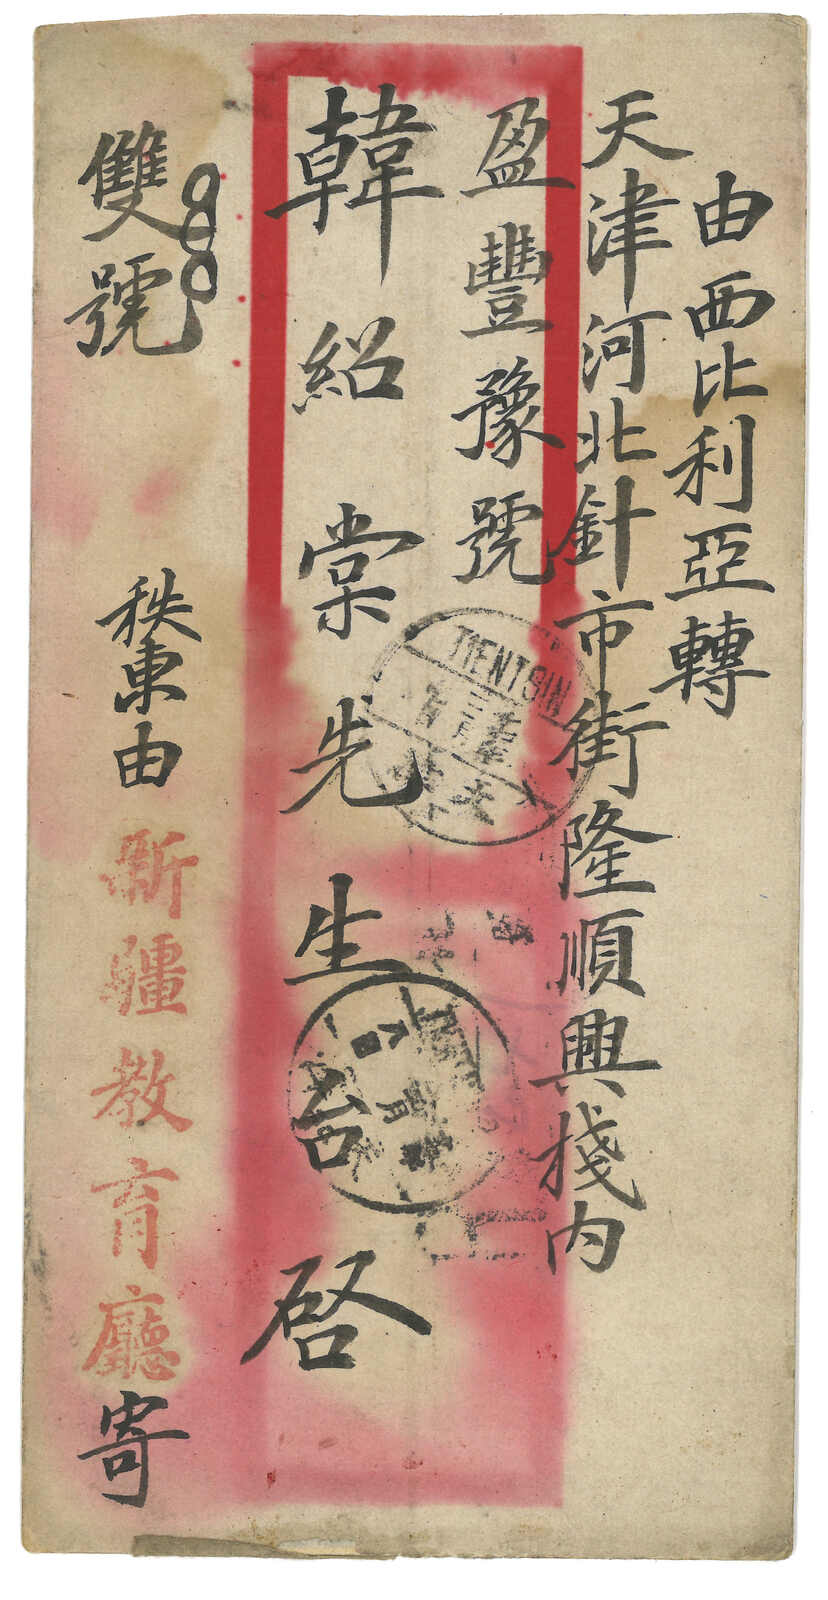 由西比利亞轉
天津河北針市街隆順興棧内
盈豐豫號
韓紹棠先生台啓
雙號
秩東由新疆教育廳寄
TIENTSIN